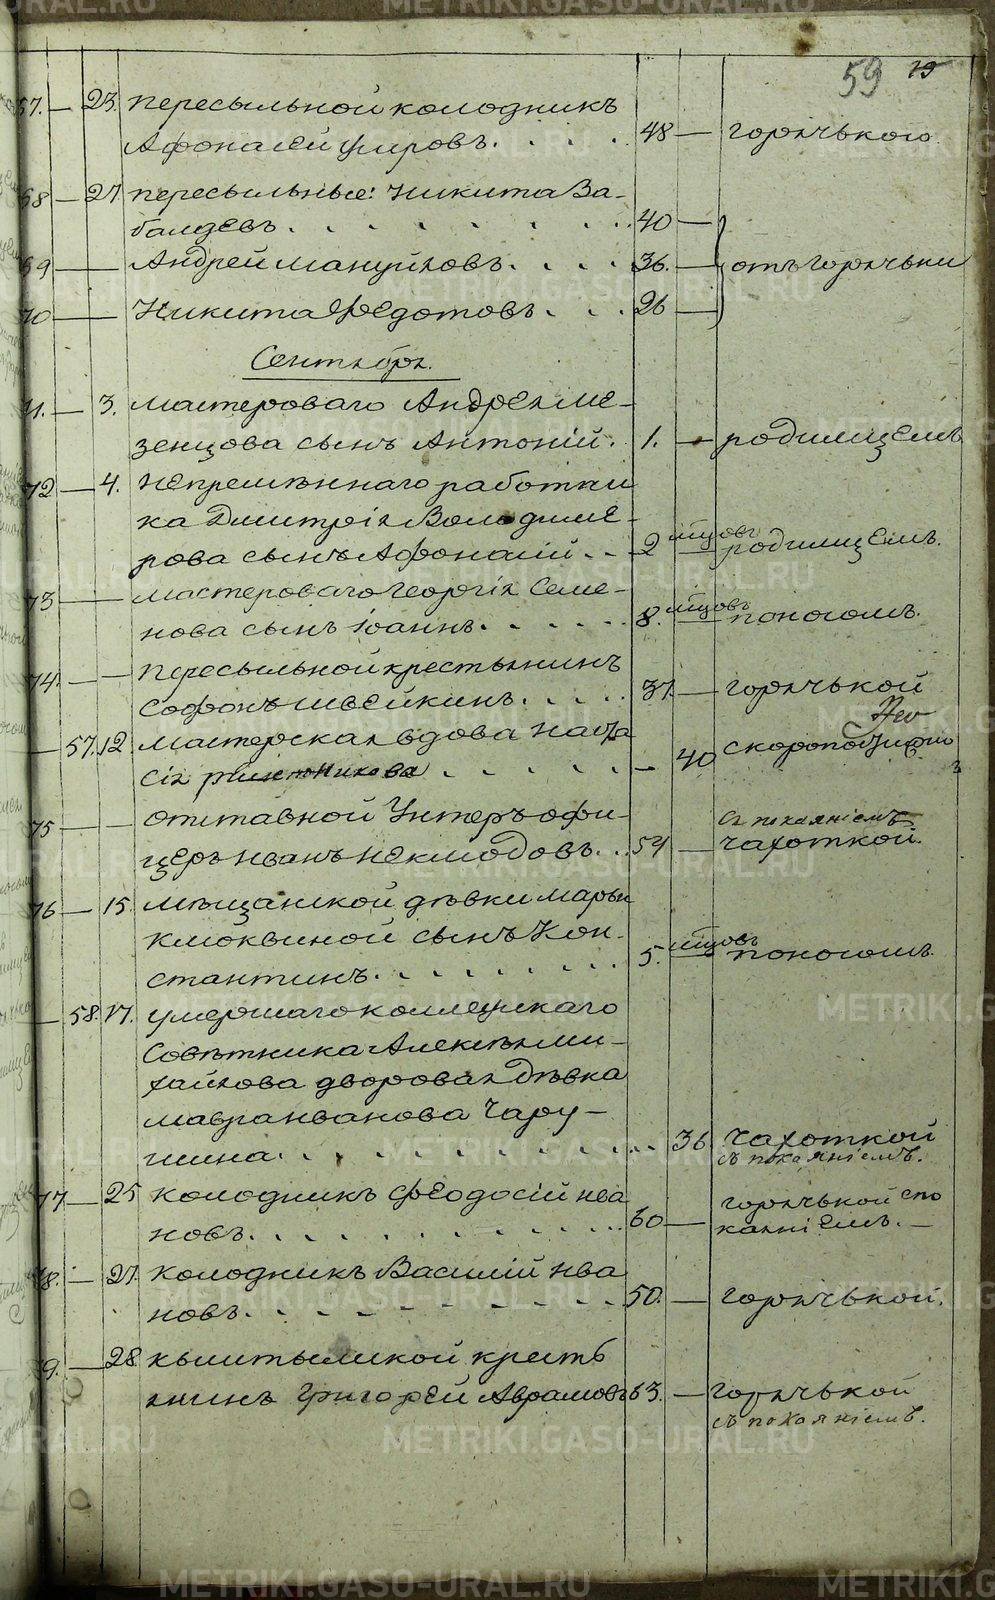 59 19
67. — 23. пересыльной колодникъ
Афонасей Фировъ. . . . . 48 — горячького
68 — 27 пересыльные: Никита Ба-
балдевъ. . . . . . . . . 40 —
69 — Андрей Мануйловъ. . . . 36. — отъ горячьки
70 — Никита Федотовъ. . . 26 —
Сентября.
71. — 3. мастероваго Андрея Ме-
зенцова сынъ Антоній. 1. — родимцемъ
72 — 4. непремѣннаго работни
ка Дмитрія Володиме-
рова сынъ Афонасій . . 2 мѣсцовъ родимцемъ.
73 — мастероваго Георгія Семе-
нова сынъ Іоаннъ. . . . . 8. мѣсцовъ поносомъ.
74. — — пересыльной крестьянинъ
Софонъ Швейкинъ. . . . . 37. — горячькой
— 57. 12. мастерская вдова Наста
сія . . . . . . — 40. скоропостижно
75 — — отставной Унтеръ офи-
церъ Иванъ Неклюдовъ. . . 54 — чахоткой.
съ покаяніемъ
76 — 15. мѣщанской дѣвки Марьи
Клюквиной сынъ Кон-
стантинъ. . . . . . . . 5. мѣсцовъ поносомъ.
— 58. 17. умершаго коллежскаго
Совѣтника Алексѣя Ми-
хайлова дворовая Дѣвка
Мавра Иванова Чару-
шина. . . . . . . . . . . 36 чахоткой
съ покаяніемъ.
77 — 25 колодникъ Феодосій Ива
новъ. . . . . . . . . . . 60 — горячькой спо
каяніемъ. —
78. — 27. колодникъ Василій Ива
новъ. . . . . . . . . . 50. — горячькой.
79. — 28. кыштымской кресть
янинъ Григорей Аврамовъ 63. — горячькой
съ покаяніемъ.
METRIKI.GASO-URAL.RU